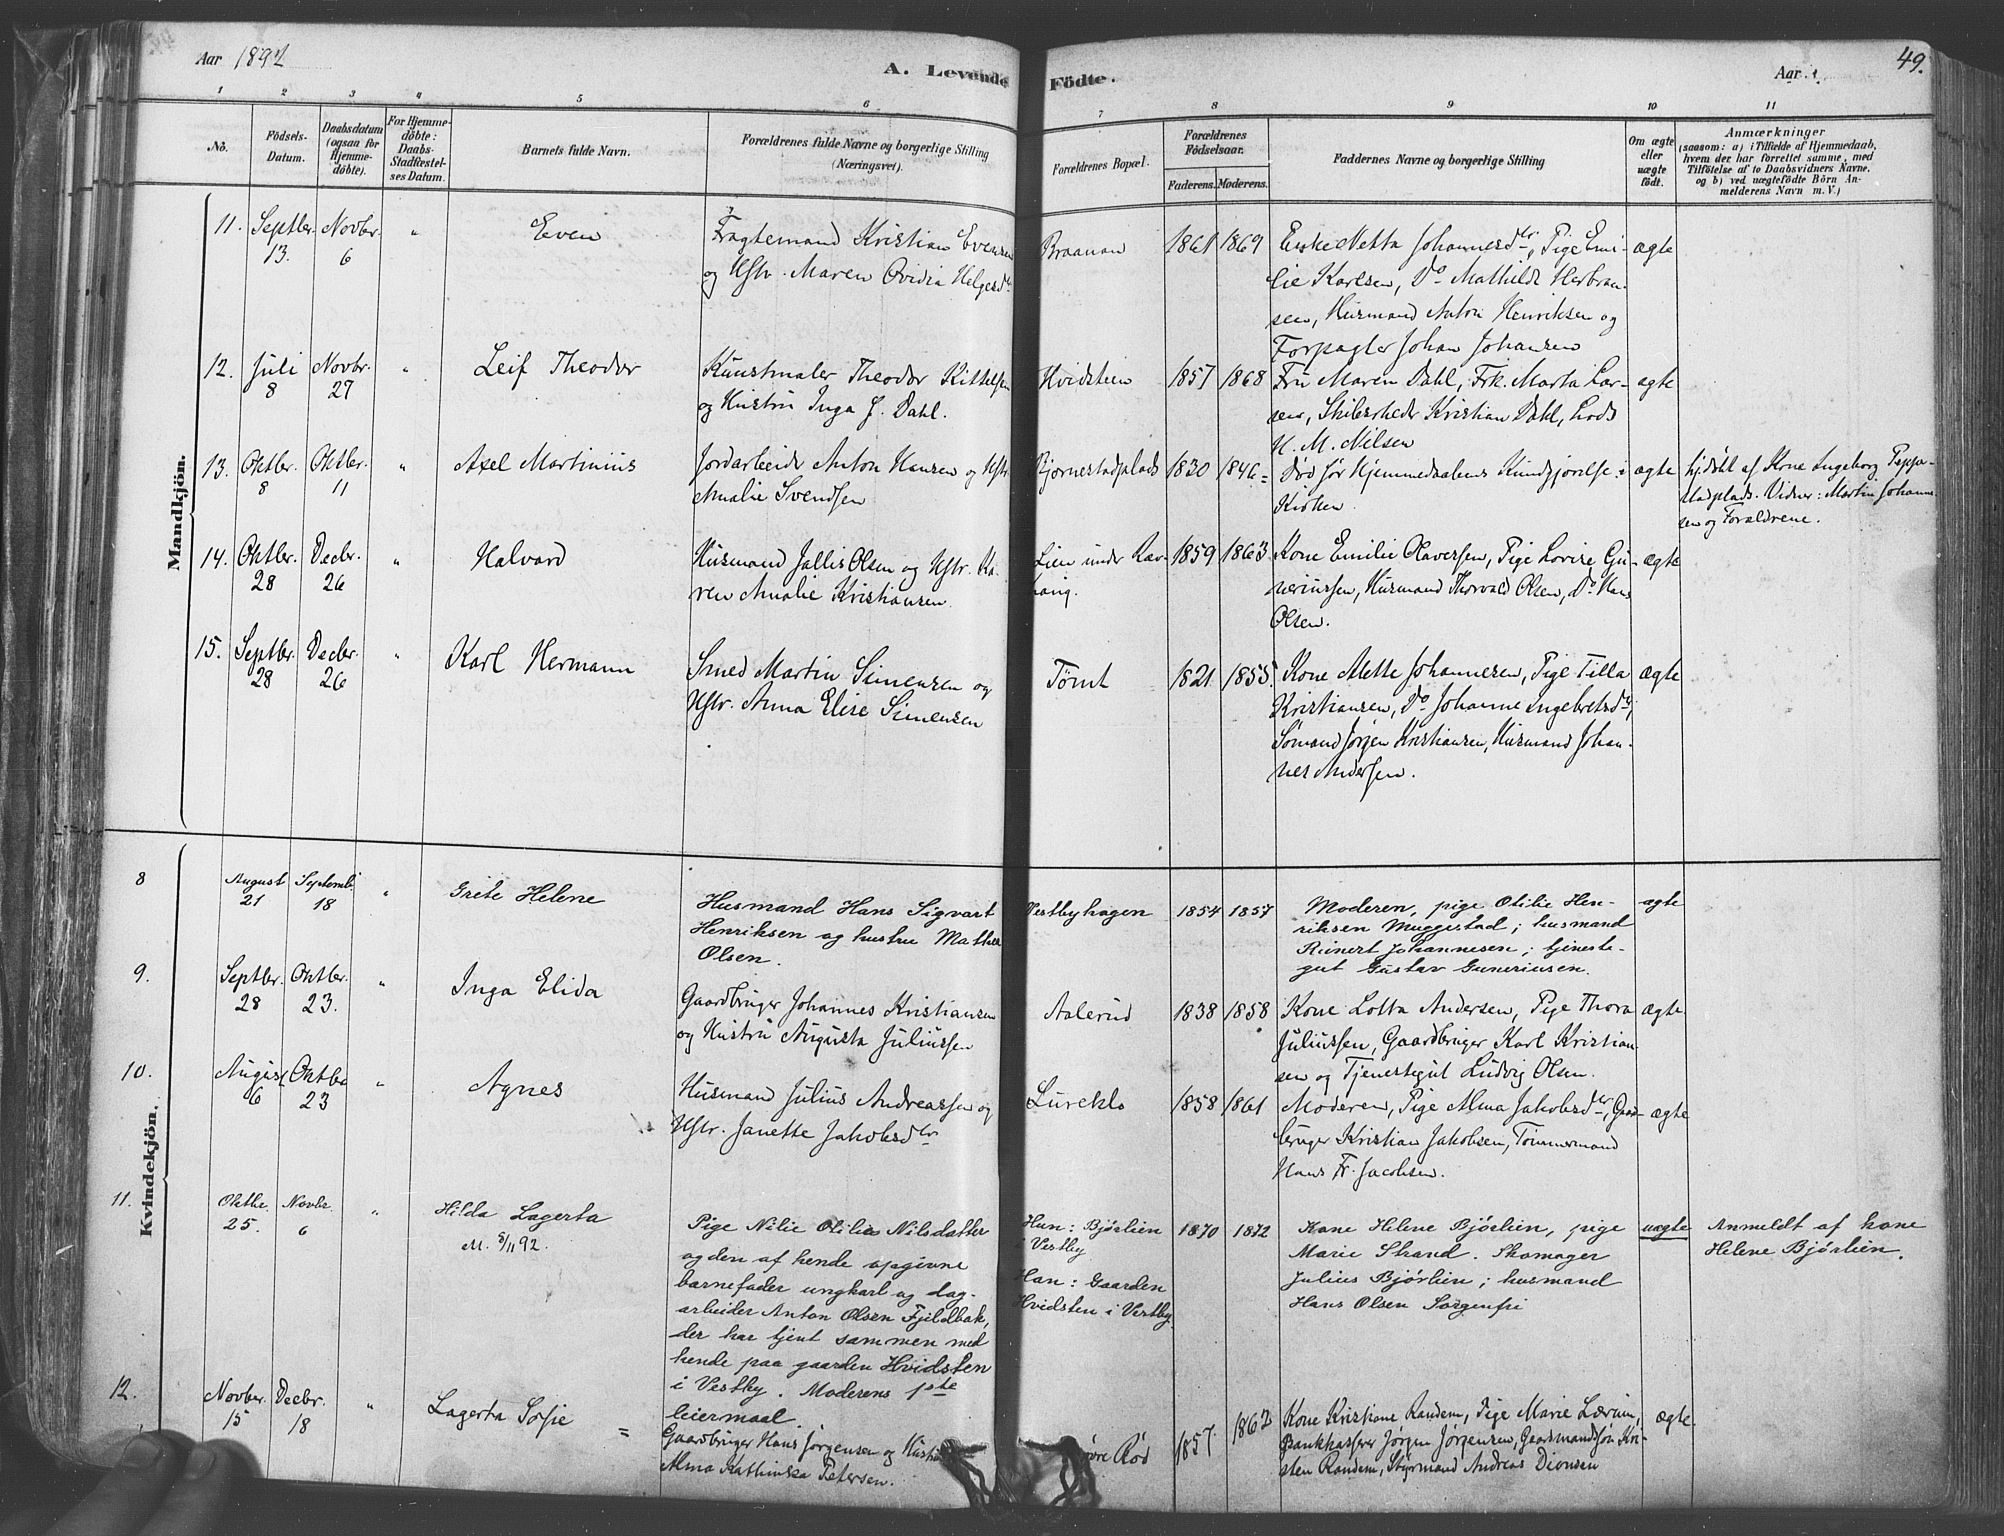 Aar 1892
A. Levende Födte.
Aar
49.
1 2 3 4 5 6 7 8 9 10 11
No.
Födsels-
Datum.
Daabsdatum
(ogsaa for
Hjemme-
döbte).
For Hjemme-
döbte:
Daabs-
Stadfæstel-
ses Datum.
Barnets fulde Navn.
Forældrenes fulde Navne og borgerlige Stilling
(Næringsvei).
Forældrenes Bopæl.
Forældrenes
Födselsaar.
Faderens. Moderens.
Faddernes Navne og borgerlige Stilling
Om ægte
eller
uægte
födt.
Anmærkninger
(saasom: a) i Tilfælde af Hjemmedaab,
hvem der har forrettet samme, med
Tilföielse af to Daabsvidners Navne.
og b) ved uægtefödte Börn An-
melderens Navn m. V.)
Mandkjön.
11. Septbr. 13. Novbr. 6 " Even
Fragtemand Kristian Evensen
og Hstr. Maren Ovidia Helgesdtr
Braanan 1861 1869
Enke Netta Johannesdtr, Pige Emi-
lie Karlsen, Do Mathilde Herbran-
sen, Husmand Anton Henriksen og
Forpagter Johan Johansen
ægte
12. Juli 8 Novbr. 27 " Leif Theodor
Kunstmaler Theodor Kittelsen
og Hustru Inga J. Dahl.
Hvidsteen 1857 1868
Fru Maren Dahl, Frk. Marta Lar-
sen, Skibsrheder Kristian Dahl, Lods
H. M. Nilsen
ægte
13. Oktbr. 8 Oktbr. 11 " Axel Martinius
Jordarbeider Anton Hansen og Hstr.
Amalie Svendsen
Bjørnestadplads 1830 1846
Død før Hjemmedaabens Kundgjørelse i
Kirken.
ægte
hjdøbt af Kone Ingeborg Peppe-
stadplads. Vidner: Martin Johanne-
sen og Forældrene.
14. Oktbr. 28 Decbr. 26 " Halvard
Husmand Jallis Olsen og Hstr. Ka-
ren Amalie Kristiansen
Lien under Rav-
haug. 1859 1863
Kone Emilie Olaversen, Pige Lovise Gu-
neriussen, Husmand Thorvald Olsen, Do Hans
Olsen.
ægte
15. Septbr. 28 Decbr. 26 " Karl Hermann
Smed Martin Simensen og
Hstr. Anna Elise Simensen
Tømt 1821 1855.
Kone Alette Johannesen, Pige Tilla
Kristiansen, Do Johanne Ingebretsdtr,
Sømand Jørgen Kristiansen, Husmand Johan-
nes Andersen.
ægte
Kvindekjön.
8 August 21 Septemb. 18 " Grete Helene
Husmand Hans Sigvart
Henriksen og hustru Mathea
Olsen.
Vestbyhagen 1854 1857
Moderen, pige Otilie Hen-
riksen Muggestad; husmand
Reinert Johannesen; tjeneste-
gut Gustav Guneriusen.
ægte
9. Septbr. 28 Oktbr. 23. " Inga Elida
Gaardbruger Johannes Kristiansen
og Hustru Augusta Juliussen
Aalerud 1838 1858
Kone Lotta Andersen, Pige Thora
Juliussen, Gaardbruger Karl Kristian-
sen og Tjenestegut Ludvig Olsen.
ægte
10. August 6 Oktbr 23 " Agnes
Husmand Julius Andreassen og
Hstr. Janette Jakobsdtr
Lureklo 1858 1861
Moderen, Pige Alma Jakobsdtr, Gaard-
bruger Kristian Jakobsen, Tømmermand
Hans Fr. Jacobsen.
ægte
11. Oktbr 25. Novbr. 6 " Hilda Lagerta
M. 8/11 92.
Pige Nilie Otilie Nilsdatter
og den af hende opgivne
barnefader ungkarl og dag-
arbeider Anton Olsen Fjeldbak,
der har tjent sammen med
hende paa gaarden Hvidsten
i Vestby. Moderens 1ste
leiermaal.
Hun: Bjørlien
i Vestby
Han: Gaarden
Hvidsten i Vestby.
1870 1872
Kone Helene Bjørlien, pige
Marie Strand. Skomager
Julius Bjørlien; husmand
Hans Olsen Sorgenfri
uægte
Anmeldt af kone
Helene Bjørlien.
12. Novbr. 15 Decbr. 18 " Lagerta Sofie
Gaardbruger Hans Jørgensen og Hustru
Alma Kathinka Petersen.
Røed 1857 1862
Kone Kristiane Randem, Pige Marie Lærum,
Bankkasserer Jørgen Jørgensen, Gaardmandsøn Kri-
sten Randem, Styrmand Andreas Dionsen
ægte.